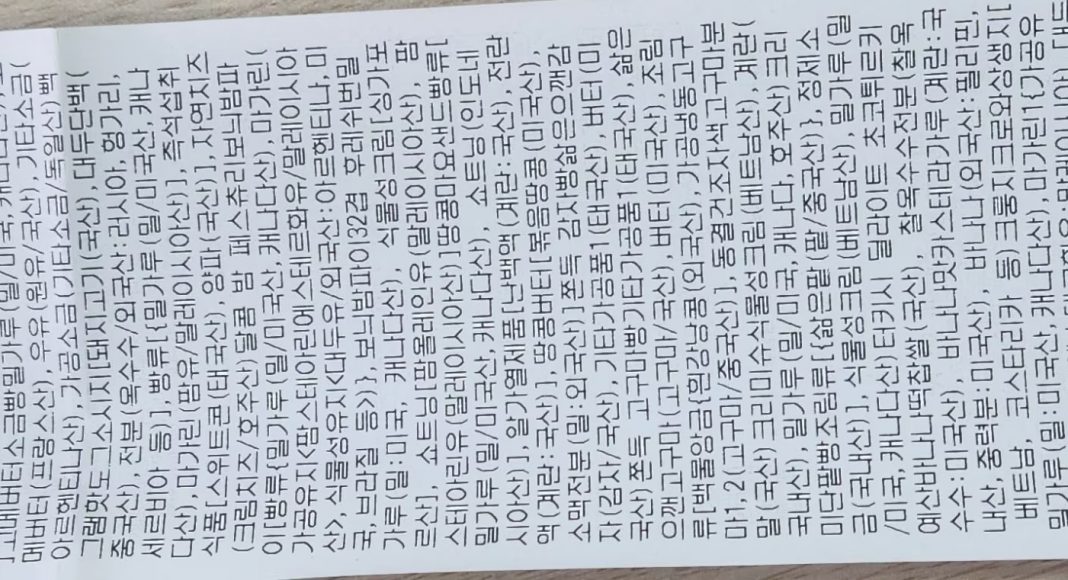 고메버터소금빵밀가루(밀/미국,캐나다산),고
메버터(프랑스산), 우유(원유/국산), 기타소금(
아르헨티나산), 가공소금(기타소금/독일산)빽
그램핫도그소시지[돼지고기(국산), 대두단백(
중국산), 전분(옥수수/외국산:러시아,헝가리,
세르비아 등)], 빵류[{밀가루(밀/미국산,캐나
다산),마가린(팜유/말레이시아산)}, 즉석섭취
식품[스위트콘(태국산), 양파(국산)], 자연치즈
(크림치즈/호주산)달콤 밤 페스츄리보늬밤파
이[빵류{밀가루(밀/미국산,캐나다산),마가린(
가공유지<팜스테아린에스테르화유/말레이시아
산>,식물성유지<대두유/외국산:아르헨티나,미
국,브라질 등>)}, 보늬밤파이32겹 후레쉬번밀
가루(밀:미국, 캐나다산), 식물성크림[싱가포
르산], 쇼트닝[팜올레인유(말레이시아산), 팜
스테아린유(말레이시아산)]땅콩마요샌드빵류[
밀가루(밀/미국산,캐나다산), 쇼트닝(인도네
시아산)], 알가열제품[난백액(계란:국산), 전란
액(계란:국산)], 땅콩버터[볶음땅콩(미국산),
소맥전분(밀:외국산)]쫀득 감자빵삶은으깬감
자(감자/국산), 기타가공품1(태국산), 버터(미
국산)쫀득 고구마빵기타가공품1(태국산), 삶은
으깬고구마(고구마/국산), 버터(미국산), 조림
류[백물앙금{흰강낭콩(외국산), 가공냉동고구
마1,2(고구마/중국산)}],동결건조자색고구마분
말(국산)크리미수식물성크림(베트남산), 계란(
국내산), 밀가루(밀/미국,캐나다, 호주산)크리
미단팥빵조림류[{삶은팥(팥/중국산)}, 정제소
금(국내산)], 식물성크림(베트남산), 밀가루(밀
/미국,캐나다산)터키시 딜라이트 초코튀르키
예산바나나떡찹쌀(국산), 찰옥수수전분(찰옥
수수:미국산), 바나나맛카스테라가루(계란:국
내산,중력분:미국산), 바나나(외국산:필리핀,
베트남, 코스타리카 등)크롱지크로와상생지[
밀가루(밀:미국산,캐나다산),마가린1{가공유